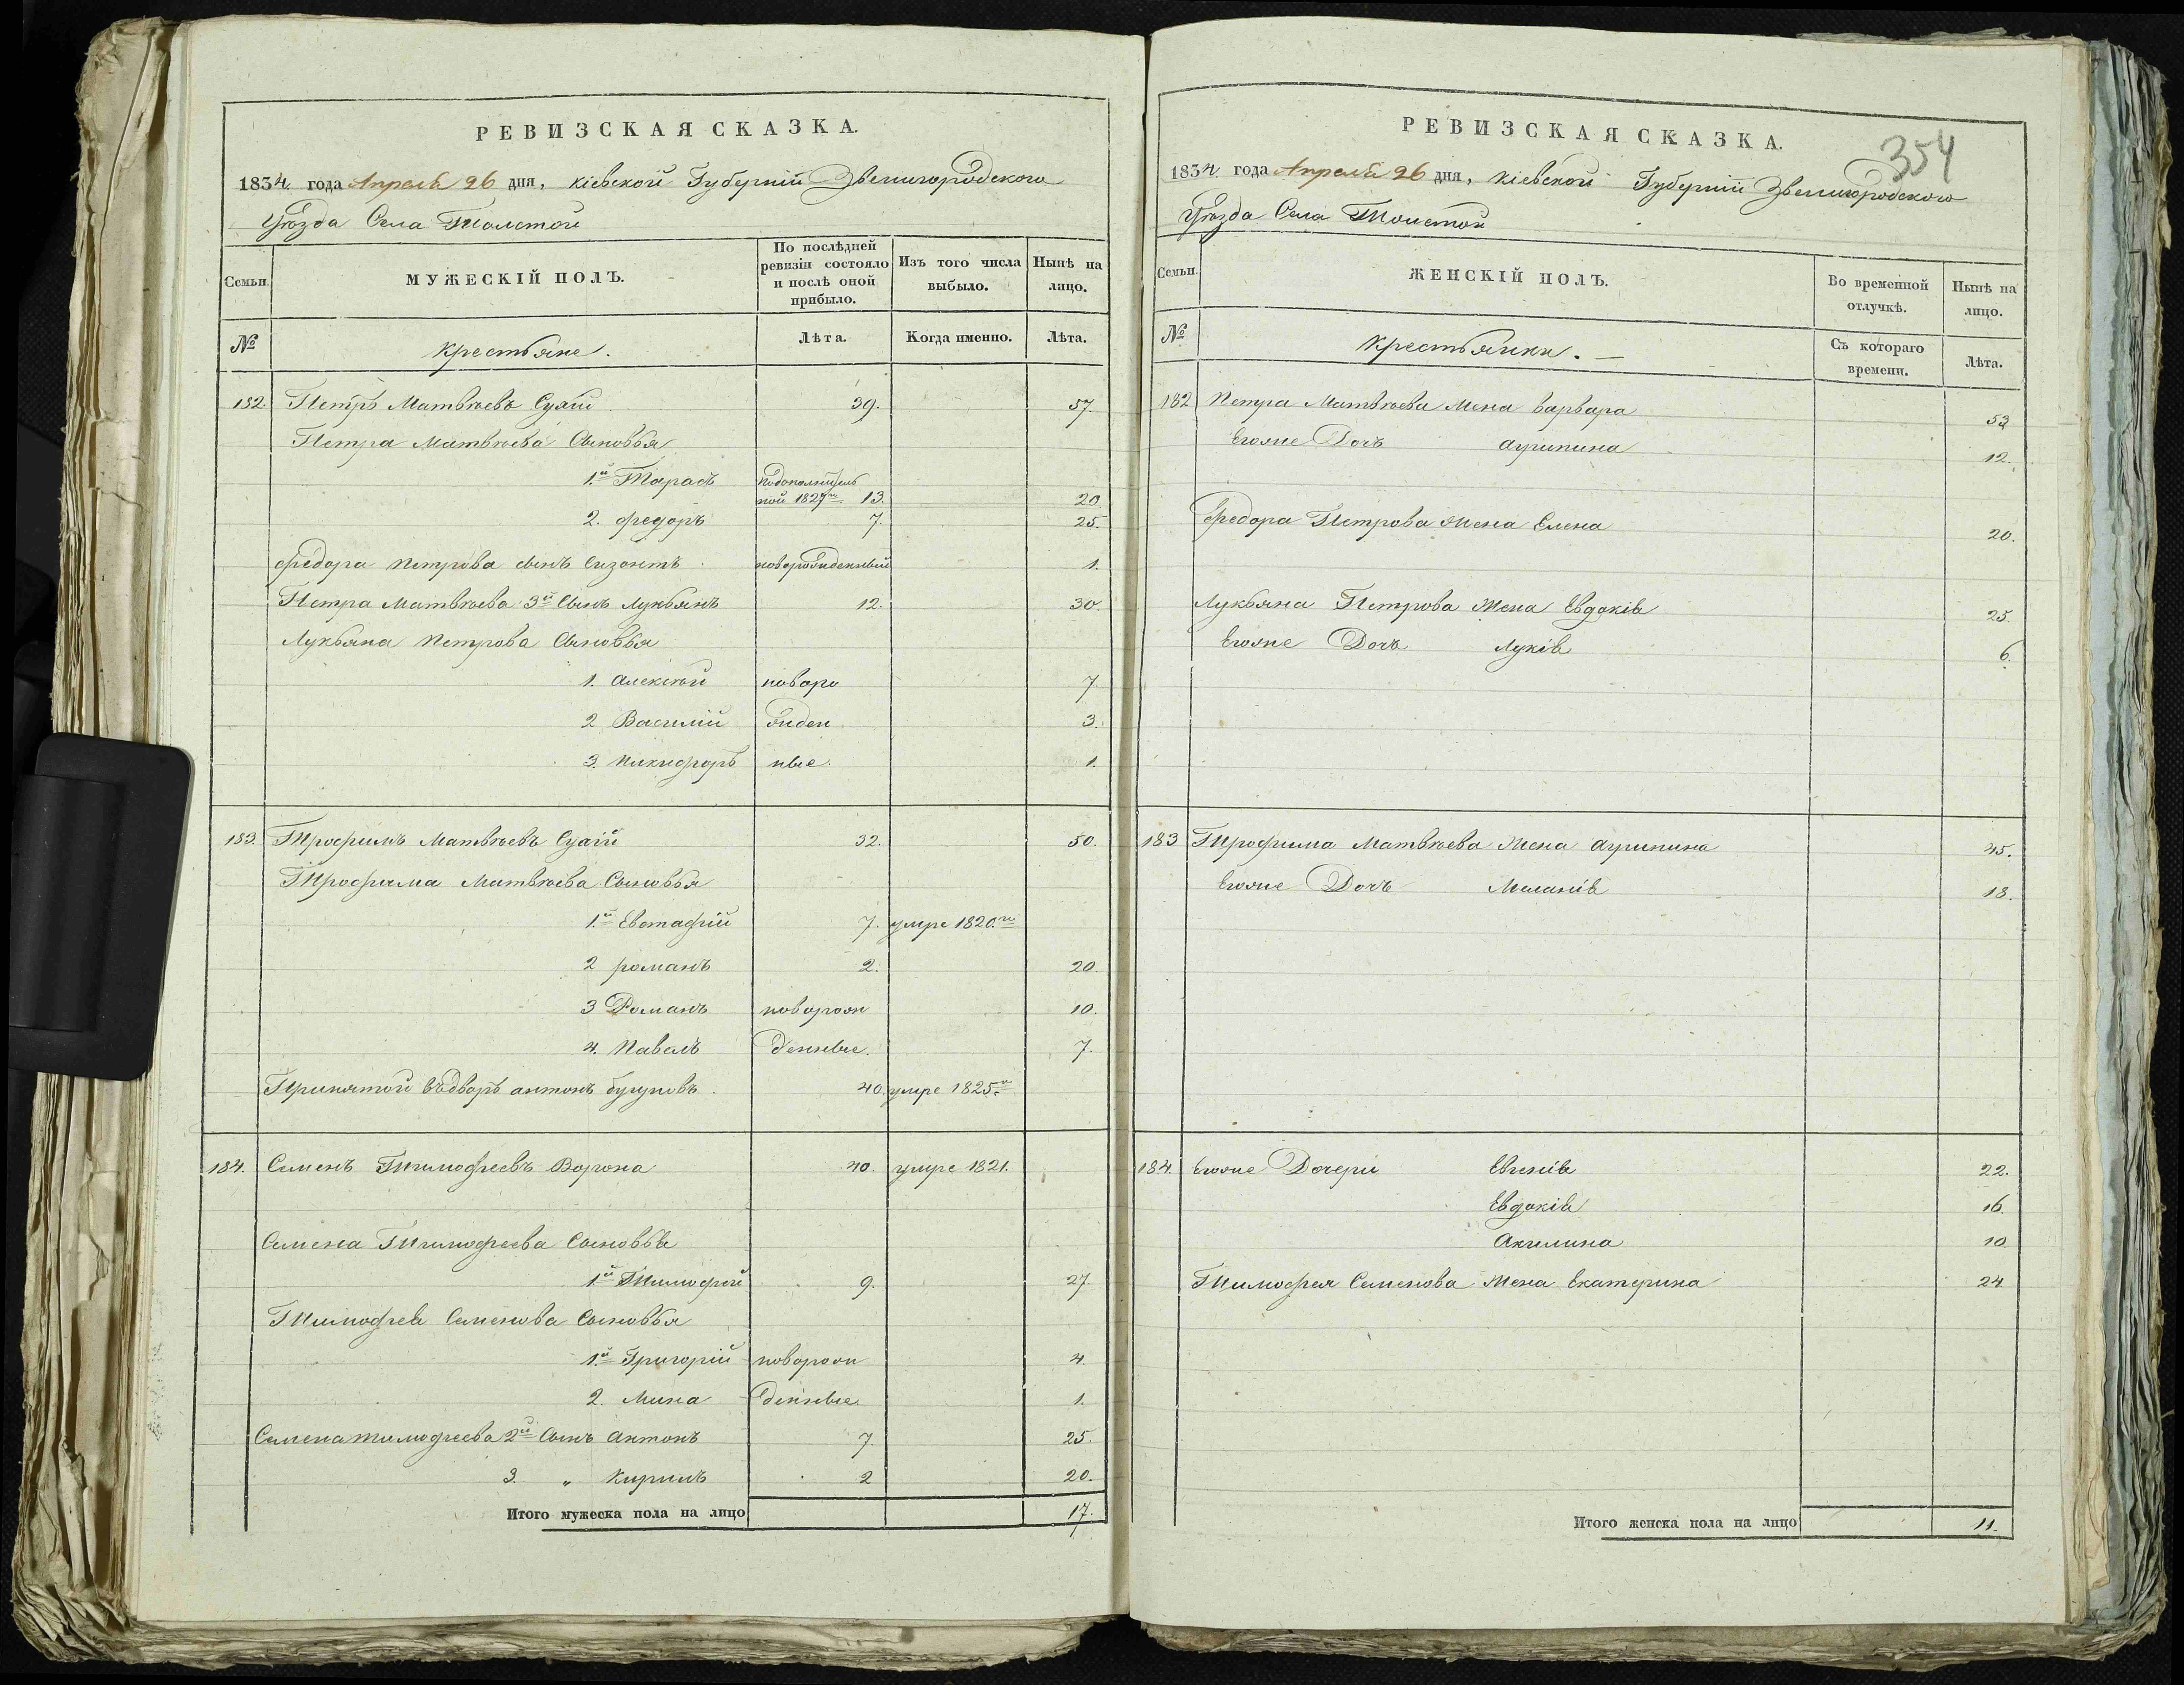 РЕВИЗСКАЯ СКАЗКА.
1834 года Апреля 26 дня, Кіевской Губерніи Звенигородского
Уѣзда Села Толстой
Семьи.
МУЖЕСКІЙ ПОЛЪ.
По послѣдней ревизіи состояло и послѣ оной прибыло.
Изъ того числа выбыло.
Нынѣ на лицо.
№
Крестьяне.
Лѣта.
Когда именно.
Лѣта.
182. Петръ Матвѣевъ 39. 57.
Петра Матвѣева Сыновья
1й Тарасъ подополнитель
ной 1827го 13. 20
2. Федоръ 7. 25.
Федора Петрова сынъ Сизонтъ новорожденный 1.
Петра Матвѣева 3й Сынъ Лукьянъ 12. 30.
Лукьяна Петрова Сыновья
1. Алексѣй новоро 7.
2 Василій жден 3.
3. Никифоръ ные. 1.
183. Трофимъ Матвѣевъ 32. 50.
Трофима Матвѣева Сыновья
1й Евстафій 7. умре 1820го
2 романъ 2. 20.
3 Романъ новорож 10.
4. Павелъ денные. 7.
Принятой въдворъ антонъ 40. умре 1825
184. Семенъ Тимофеевъ Ворона 40. умре 1821.
Семена Тимофеева Сыновья
1й Тимофей 9. 27
Тимофея Семенова Сыновья
1й Григорій новорож 4.
2. Мина денные. 1.
Семена тимофеева 2й Сынъ Антонъ 7. 25.
3. „ Кирилъ 2 20.
Итого мужеска пола на лицо 17.
354
РЕВИЗСКАЯ СКАЗКА.
1834 года Апреля 26 дня, Кіевской Губерніи Звенигородского
Уѣзда Села Толстой
Семьи.
ЖЕНСКІЙ ПОЛЪ.
Во временной отлучкѣ.
Нынѣ на лицо.
№
Крестьянки.
Съ котораго времени.
Лѣта.
182 Петра Матвѣева Жена варвара 53
Егоже Дочь агрипина 12.
Федора Петрова Жена Елена 20.
Лукьяна Петрова Жена Евдокія 25.
Егоже Дочь Лукія 6.
183 Трофима Матвѣева Жена агрипина 45.
Егоже Дочь Меланія 18.
184. Егоже Дочери Евгенія 22.
Евдокія 16.
Акилина 10
Тимофея Семенова Жена Екатерина 24
Итого женска пола на лицо 11.